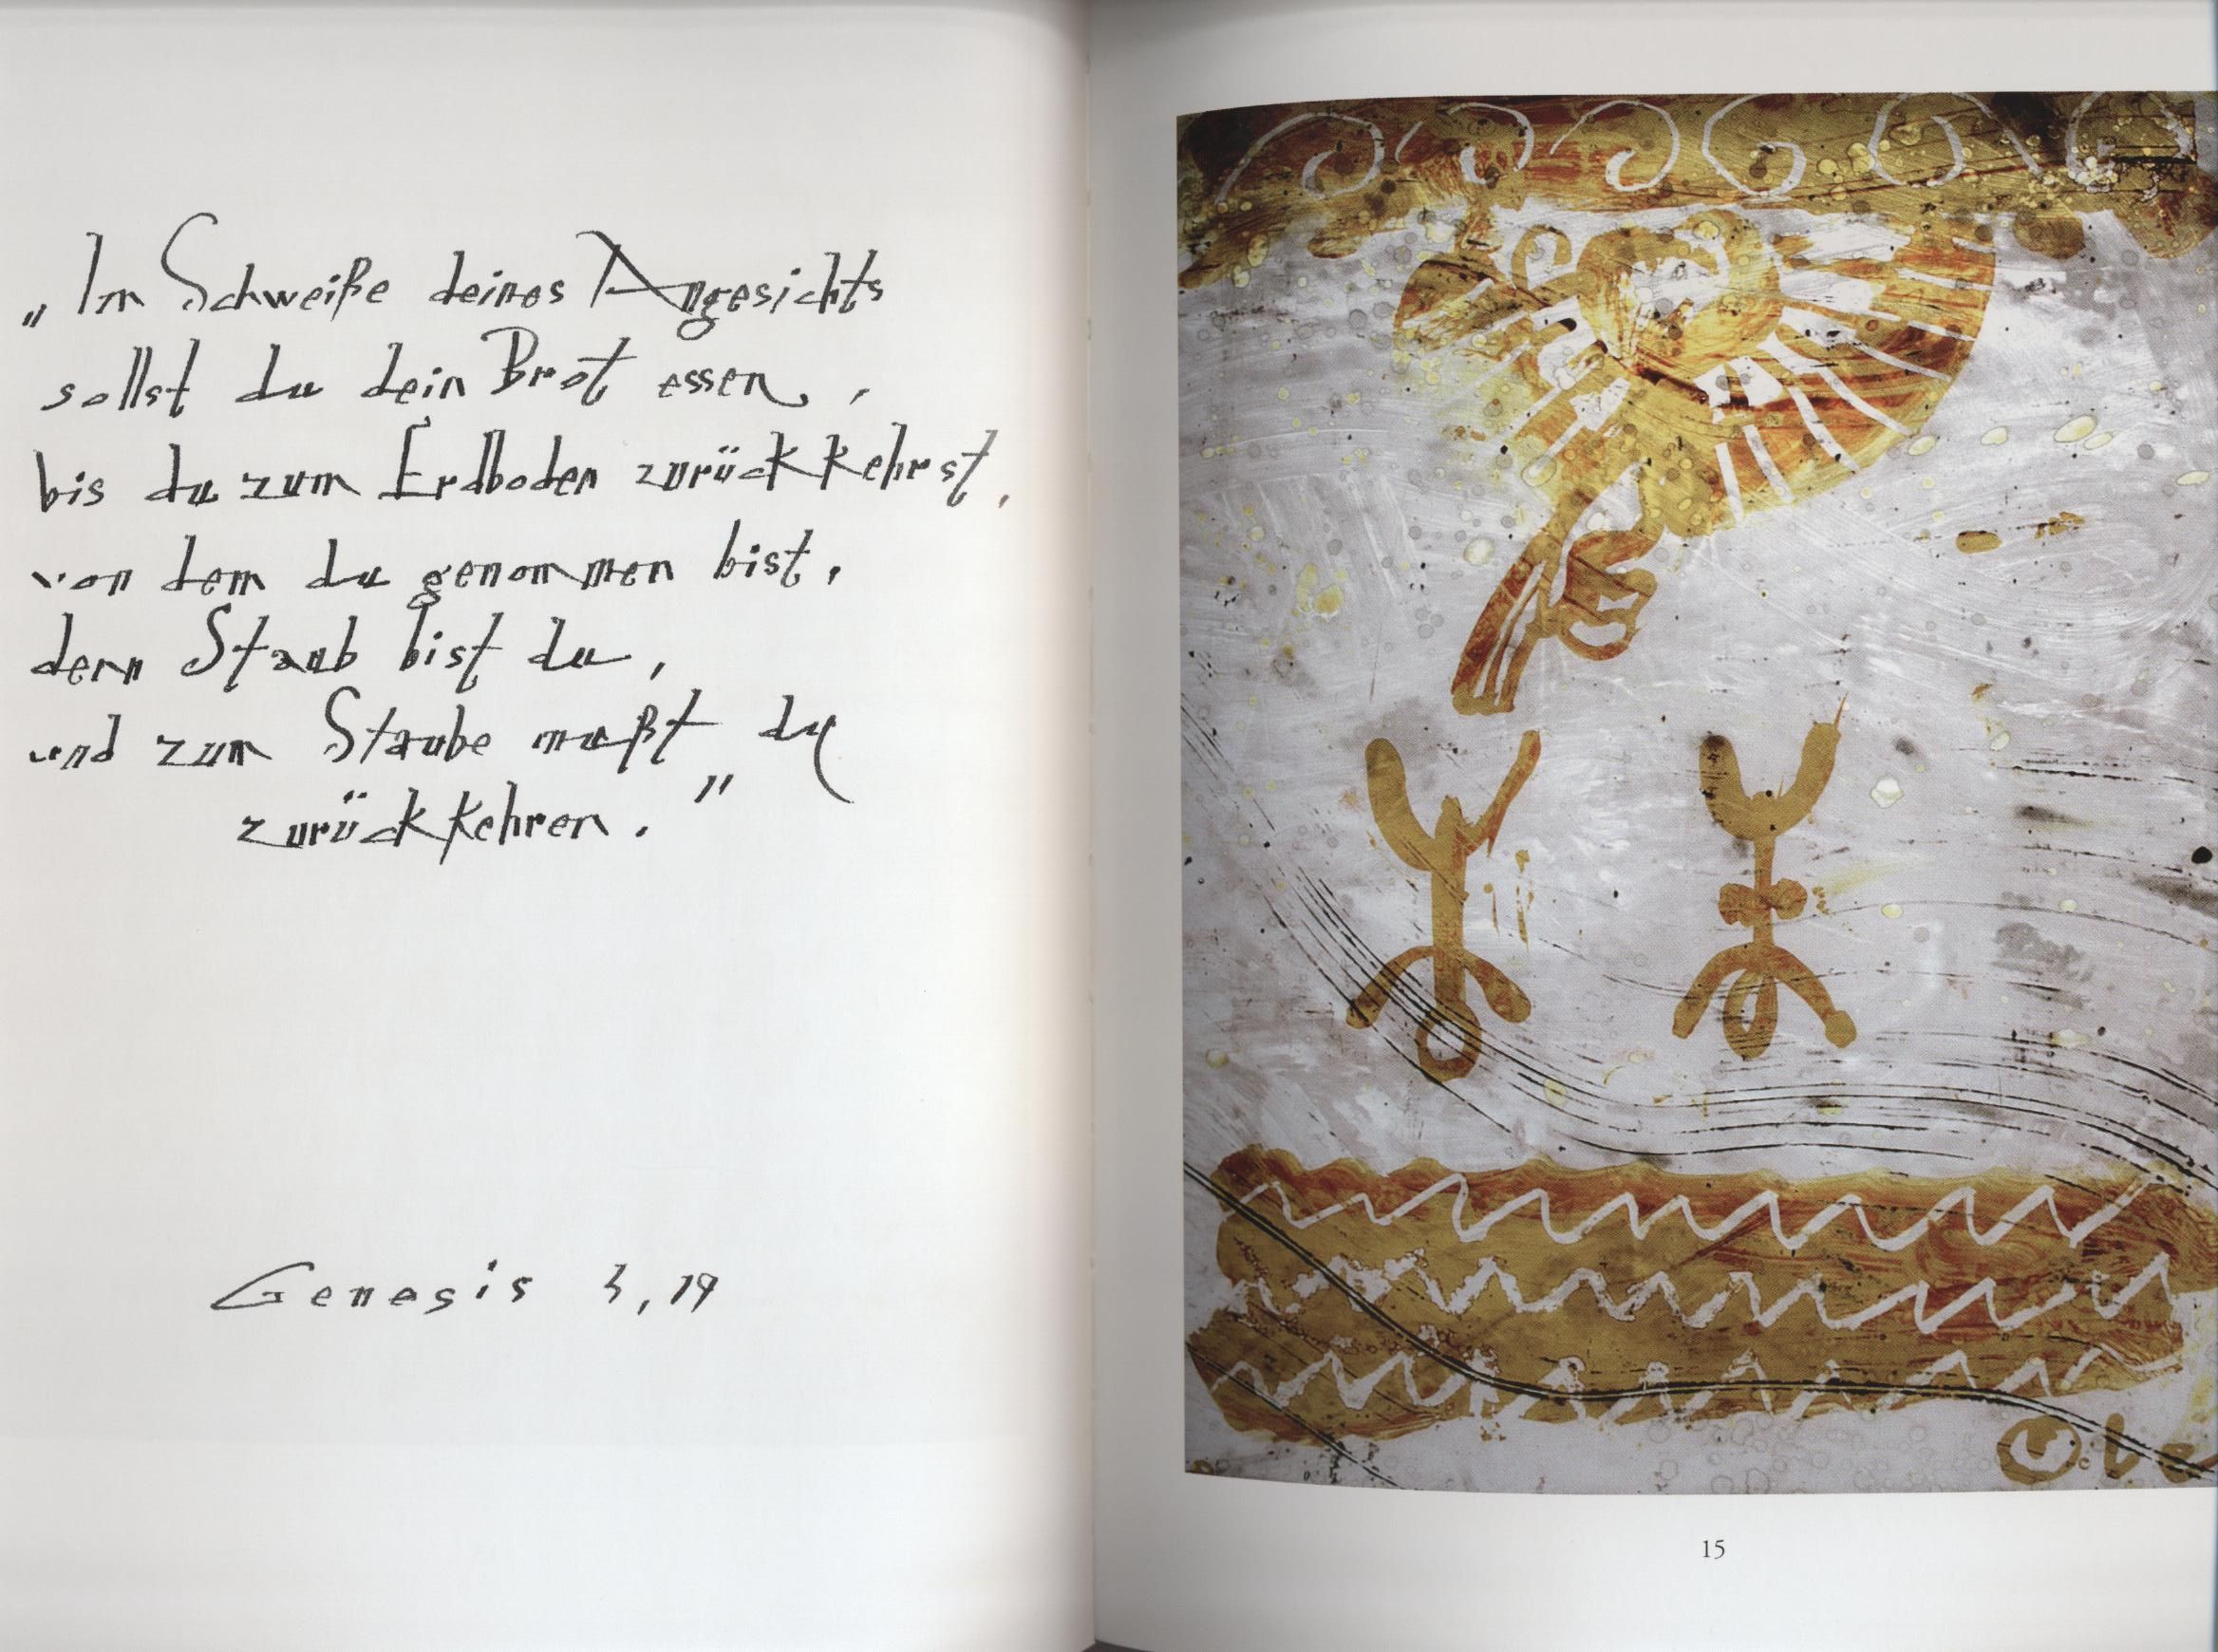 „Im Schweiße deines Angesichts
sollst du dein Brot essen,
bis du zum Erdboden zurückkehrst,
von dem du genommen bist,
denn Staub bist du,
und zum Staube mußt du
zurückkehren."
Genesis 3,19
15